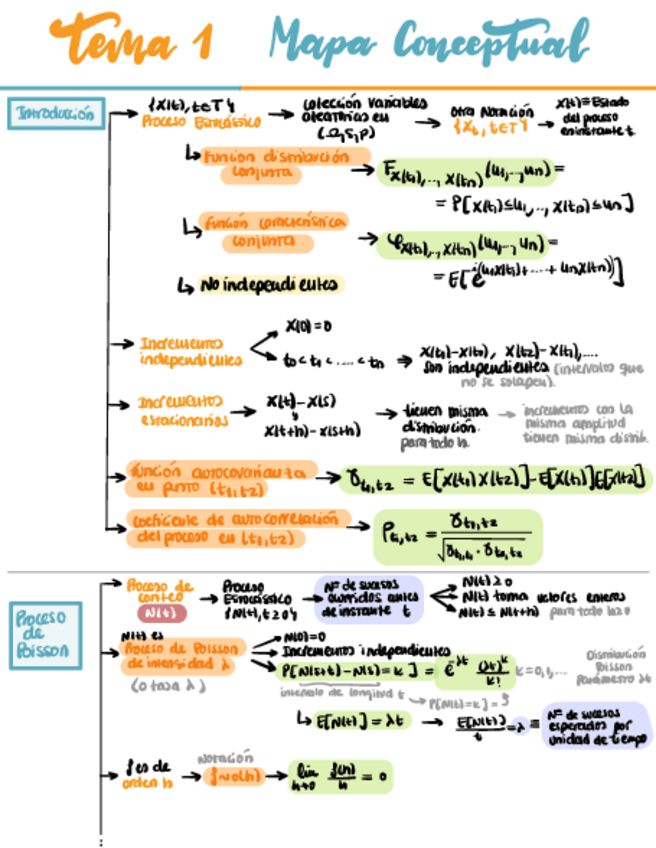 Tema 1 Mapa Conceptual
Introducción
{X(t), t∈T}
Proceso Estocástico
colección variables
aleatorias en
(Ω,S,P)
otra notación
{Xt, t∈T}
X(t)≡Estado
del proceso
en instante t.
Función distribución
conjunta
F_{X(t1),..., X(tn)}(u1,...,un) =
= P[X(t1)≤u1,..., X(tn)≤un]
Función característica
conjunta
φ_{X(t1),..., X(tn)}(u1,...,un) =
= E[e^{i(u1X(t1)+....+unX(tn))}]
No independientes
Incrementos
independientes
X(0)=0
t0<t1<....<tn
X(t1)-X(t0), X(t2)-X(t1),....
son independientes (intervalos que
no se solapen).
Incrementos
estacionarios
X(t)-X(s)
y
X(t+h)-X(s+h)
tienen misma
distribución.
para todo h.
incrementos con la
misma amplitud
tienen misma distrib.
función autocovarianza
en punto (t1,t2)
γ_{t1,t2} = E[X(t1)X(t2)]-E[X(t1)]E[X(t2)]
coeficiente de autocorrelación
del proceso en (t1,t2)
ρ_{t1,t2} = γ_{t1,t2} / √(γ_{t1,t1}·γ_{t2,t2})
Proceso
de
Poisson
Proceso de
conteo
N(t)
Proceso
Estocástico
{N(t), t≥0}
Nº de sucesos
ocurridos antes
de instante t
N(t)≥0
N(t) toma valores enteros
N(t)≤N(t+h) para todo h≥0
N(t) es
Proceso de Poisson
de intensidad λ
(o tasa λ)
N(0)=0
Incrementos independientes
P[N(s+t)-N(s)=k] = e^{-λt} (λt)^k / k! k=0,1,...
Distribución
Poisson
Parámetro λt
intervalo de longitud t
P[N(t)=k]
E[N(t)] = λt
E[N(t)]/t = λ ≡
Nº de sucesos
esperados por
unidad de tiempo
f es de
orden h
Notación
f~o(h)
lim h→0 f(h)/h = 0